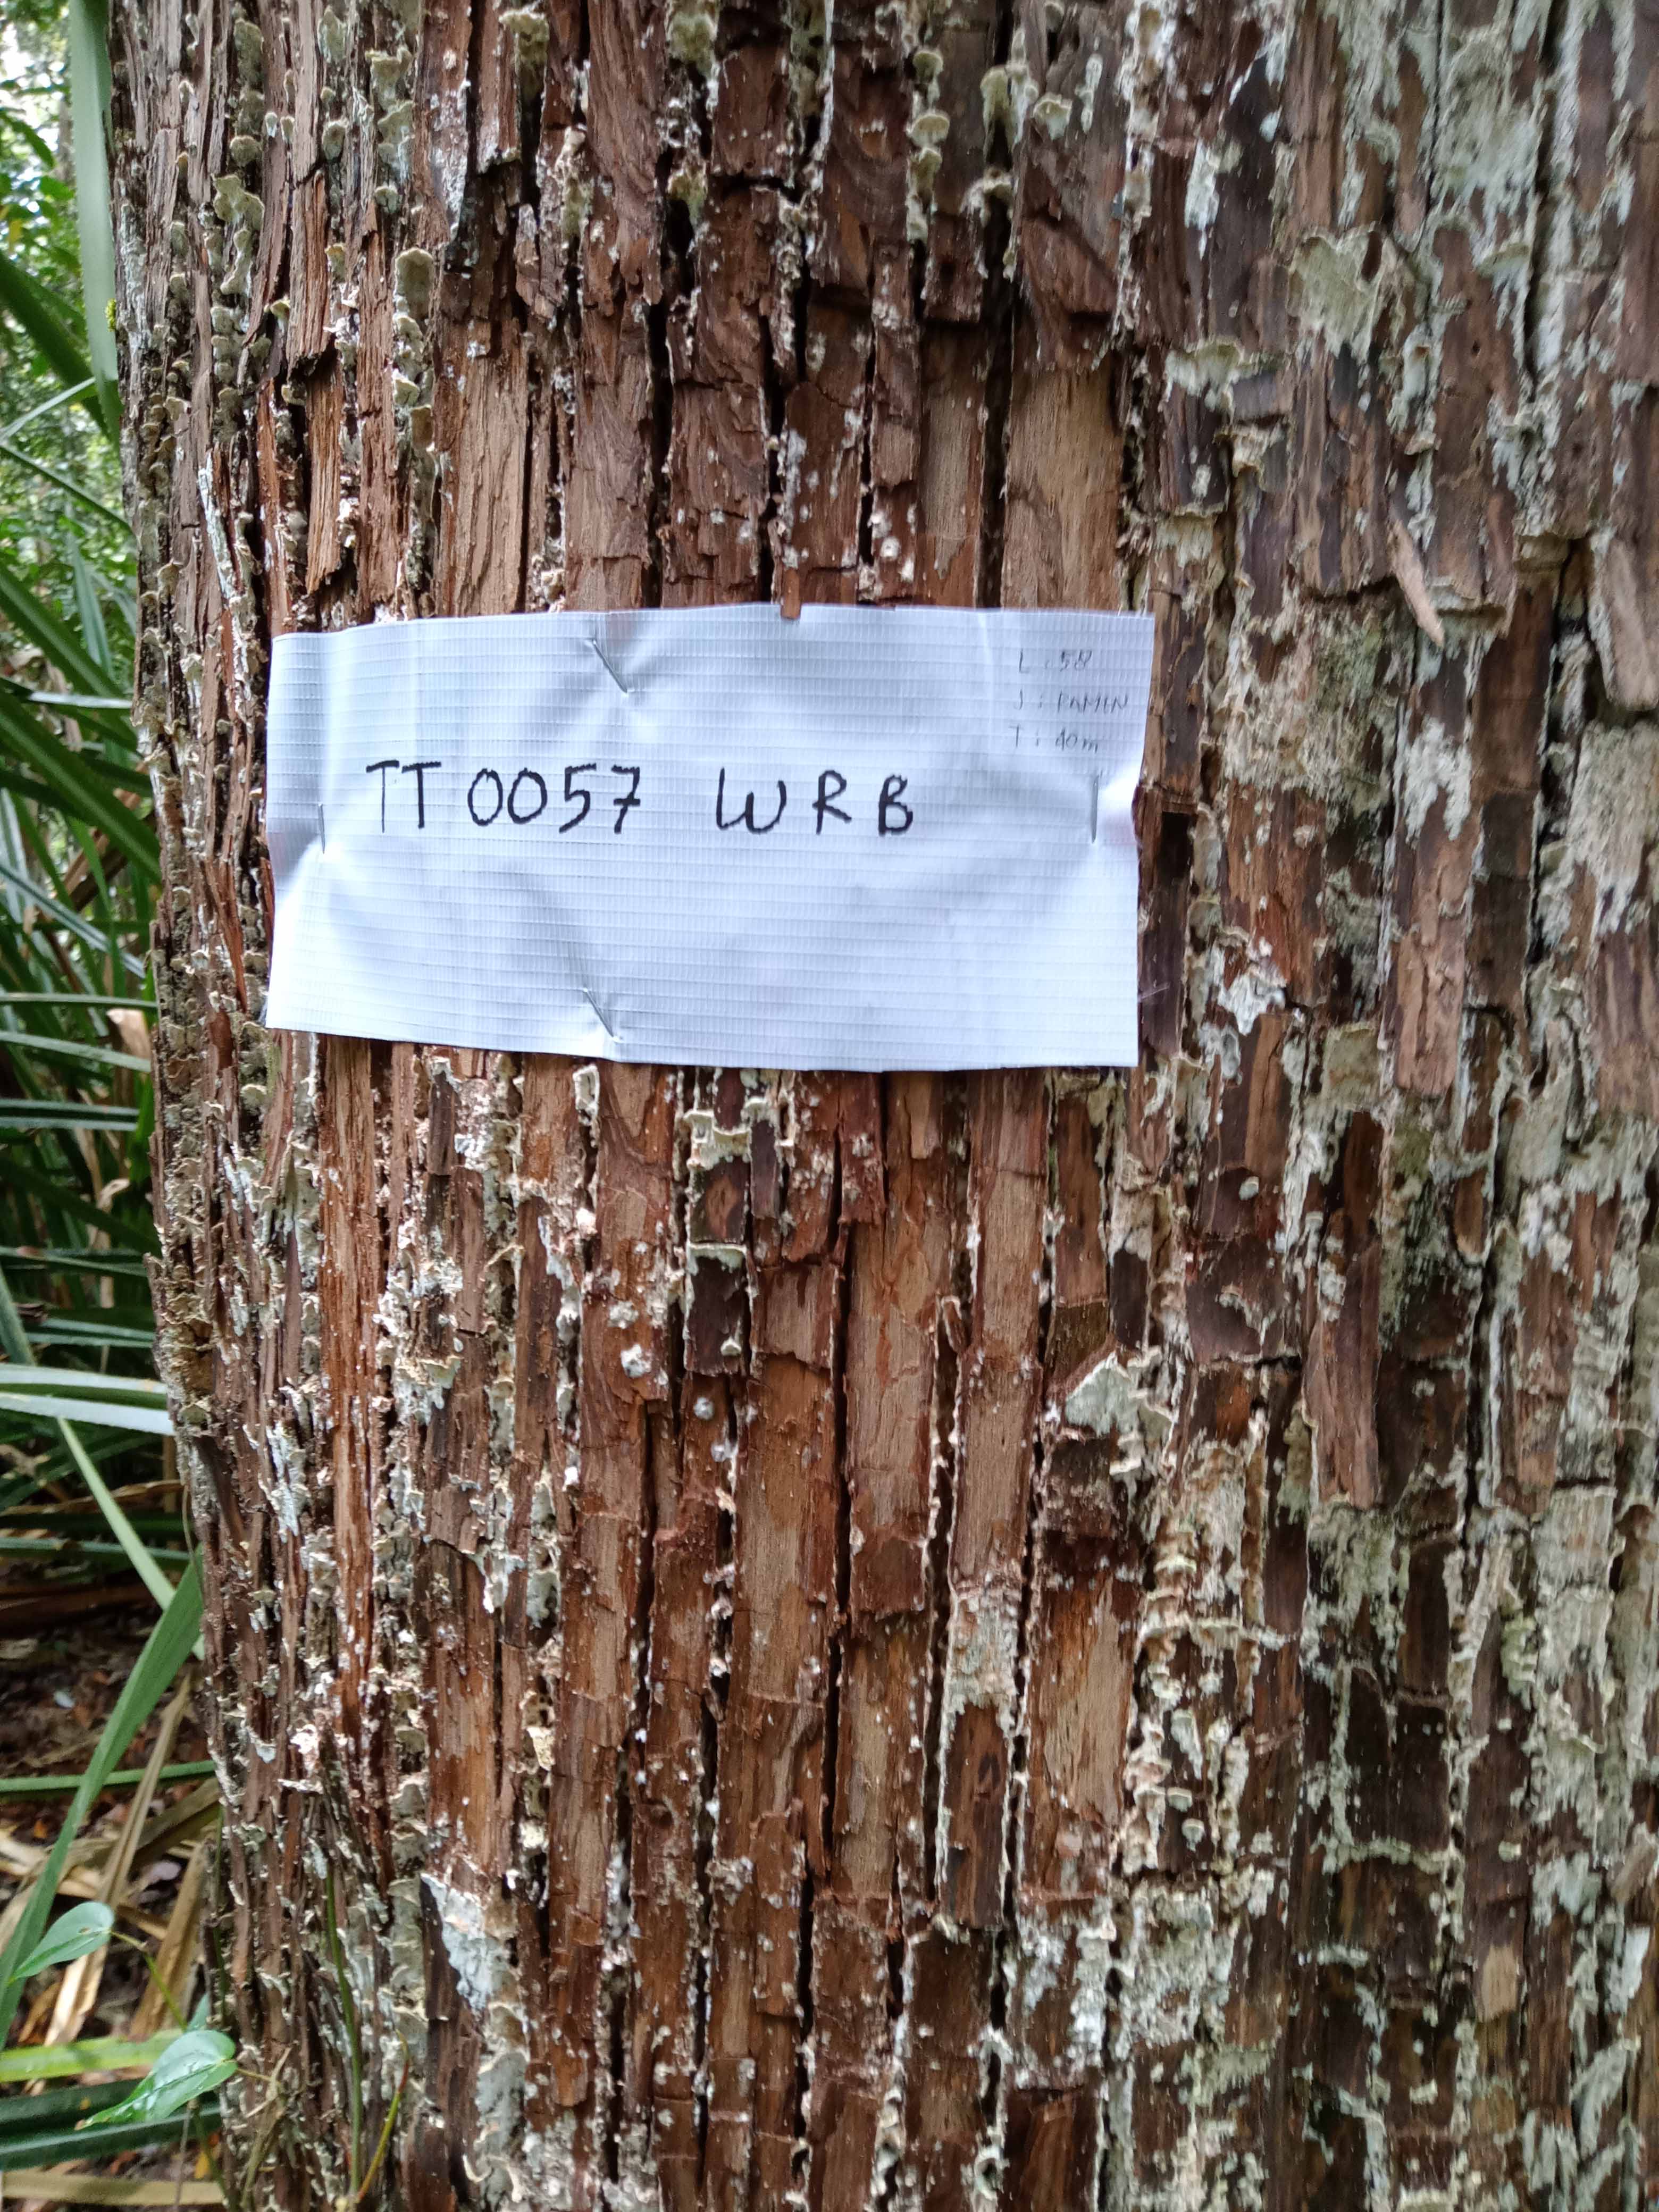 L : 58
J : RAMIN
T : 40m
TT 0057 WRB